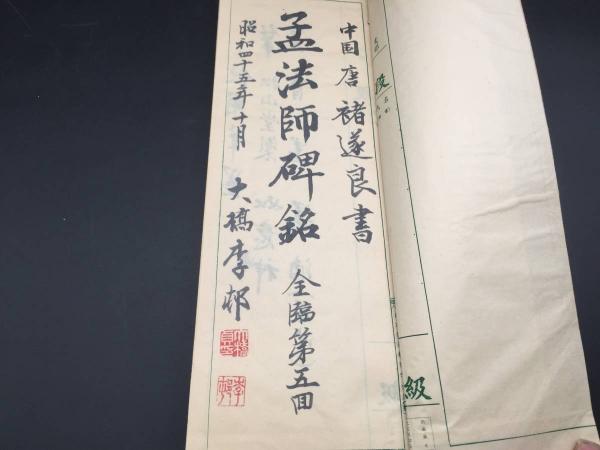 中国 唐 褚遂良書
孟法師碑銘 全臨第五回
昭和四十五年十月 大橋李邨
級